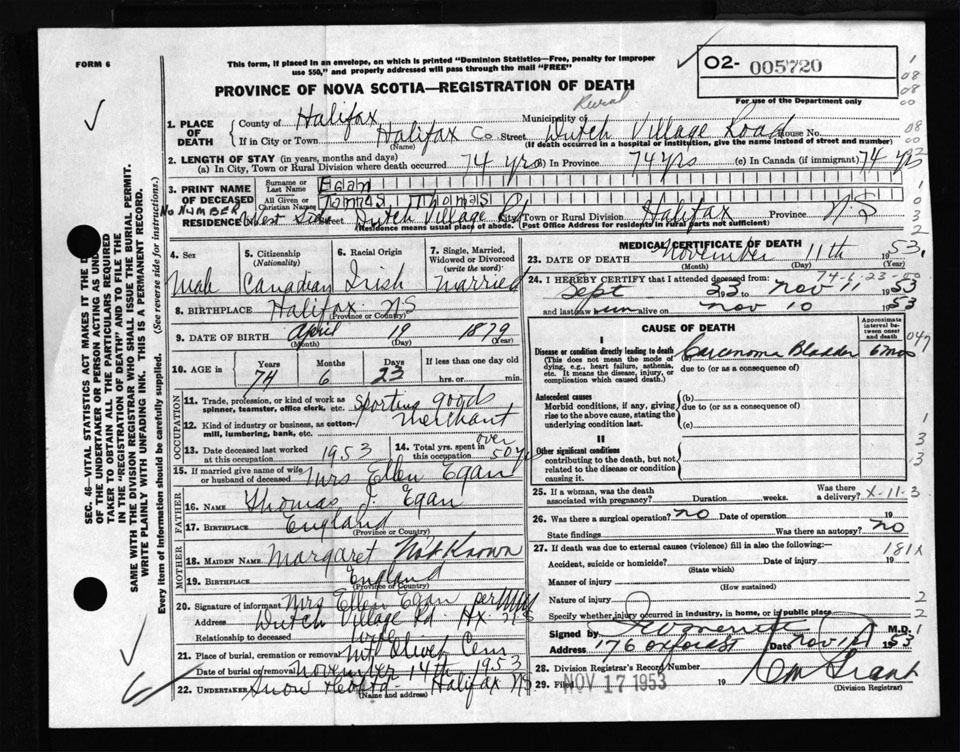 FORM 6
This form, if placed in an envelope, on which is printed "Dominion Statistics—Free, penalty for improper
use $50," and properly addressed will pass through the mail "FREE"
PROVINCE OF NOVA SCOTIA—REGISTRATION OF DEATH
O2- 005720
For use by the Department only
1. PLACE OF DEATH
County of Halifax Municipality of Rural
If in City or Town Halifax Co. Street Dutch Village Road House No.
(Name) (If death occurred in a hospital or institution, give the name instead of street and number)
2. LENGTH OF STAY (in years, months and days)
(a) In City, Town or Rural Division where death occurred 74 yrs (b) In Province 74 yrs (c) In Canada (if immigrant) 74 yrs
3. PRINT NAME OF DECEASED
Surname or Last Name Egan
All Given or Christian Names Thomas
No NUMBER
RESIDENCE West Side Street Dutch Village Rd City Town or Rural Division Halifax Province N.S
(Residence means usual place of abode) (Post Office Address for residents in rural parts not sufficient)
4. Sex
Male
5. Citizenship (Nationality)
Canadian
6. Racial Origin
Irish
7. Single, Married, Widowed or Divorced (write the word)
Married
8. BIRTHPLACE Halifax N.S
(Province or Country)
9. DATE OF BIRTH April 19 1879
(Month) (Day) (Year)
10. AGE in Years Months Days If less than one day old
74 6 23 hrs. or min.
OCCUPATION
11. Trade, profession, or kind of work as spinner, teamster, office clerk, etc. Sporting goods
12. Kind of industry or business, as cotton-mill, lumbering, bank, etc. Merchant
13. Date deceased last worked at this occupation 1953
14. Total yrs. spent in this occupation over 50 yrs
15. If married give name of wife or husband of deceased Mrs Ellen Egan
FATHER
16. NAME Thomas J. Egan
17. BIRTHPLACE England
(Province or Country)
MOTHER
18. MAIDEN NAME Margaret Not Known
19. BIRTHPLACE England
(Province or Country)
20. Signature of informant Mrs Ellen Egan per
Address Dutch Village Rd Hx N.S
Relationship to deceased wife
21. Place of burial, cremation or removal Mt Olivet Cem
Date of burial or removal November 14th 1953
22. UNDERTAKER Snow Halifax NS
(Name and address)
MEDICAL CERTIFICATE OF DEATH
23. DATE OF DEATH November 11th 1953
(Month) (Day) (Year)
74-6-23-00
24. I HEREBY CERTIFY that I attended deceased from:
Sept 23 to Nov 11 1953
and last saw him alive on Nov 10 1953
CAUSE OF DEATH
Approximate interval between onset and death
I
Disease or condition directly leading to death Carcenoma Bladder 6 mos
(This does not mean the mode of dying, e.g., heart failure, asthenia, etc. It means the disease, injury, or complication which caused death.)
due to (or as a consequence of)
Antecedent causes
Morbid conditions, if any, giving rise to the above cause, stating the underlying condition last.
(b)
due to (or as a consequence of)
(c)
II
Other significant conditions
contributing to the death, but not related to the disease or condition causing it.
25. If a woman, was the death associated with pregnancy? Duration weeks. Was there a delivery? X-11-3
26. Was there a surgical operation? no Date of operation 19
State findings Was there an autopsy? no
27. If death was due to external causes (violence) fill in also the following:—
181x
Accident, suicide or homicide? Date of injury 19
(State which)
Manner of injury
(How sustained)
Nature of injury
Specify whether injury occurred in industry, in home, or in public place
Signed by M.D.
Address 176 Date Nov 1953
28. Division Registrar's Record Number
29. Filed NOV 17 1953 19
(Division Registrar)
SEC. 46—VITAL STATISTICS ACT MAKES IT THE
OF THE UNDERTAKER OR PERSON ACTING AS UNDER-
TAKER TO OBTAIN ALL THE PARTICULARS REQUIRED
IN THE "REGISTRATION OF DEATH" AND TO FILE THE
SAME WITH THE DIVISION REGISTRAR WHO SHALL ISSUE THE BURIAL PERMIT.
WRITE PLAINLY WITH UNFADING INK. THIS IS A PERMANENT RECORD.
Every item of information should be carefully supplied. (See reverse side for instructions.)